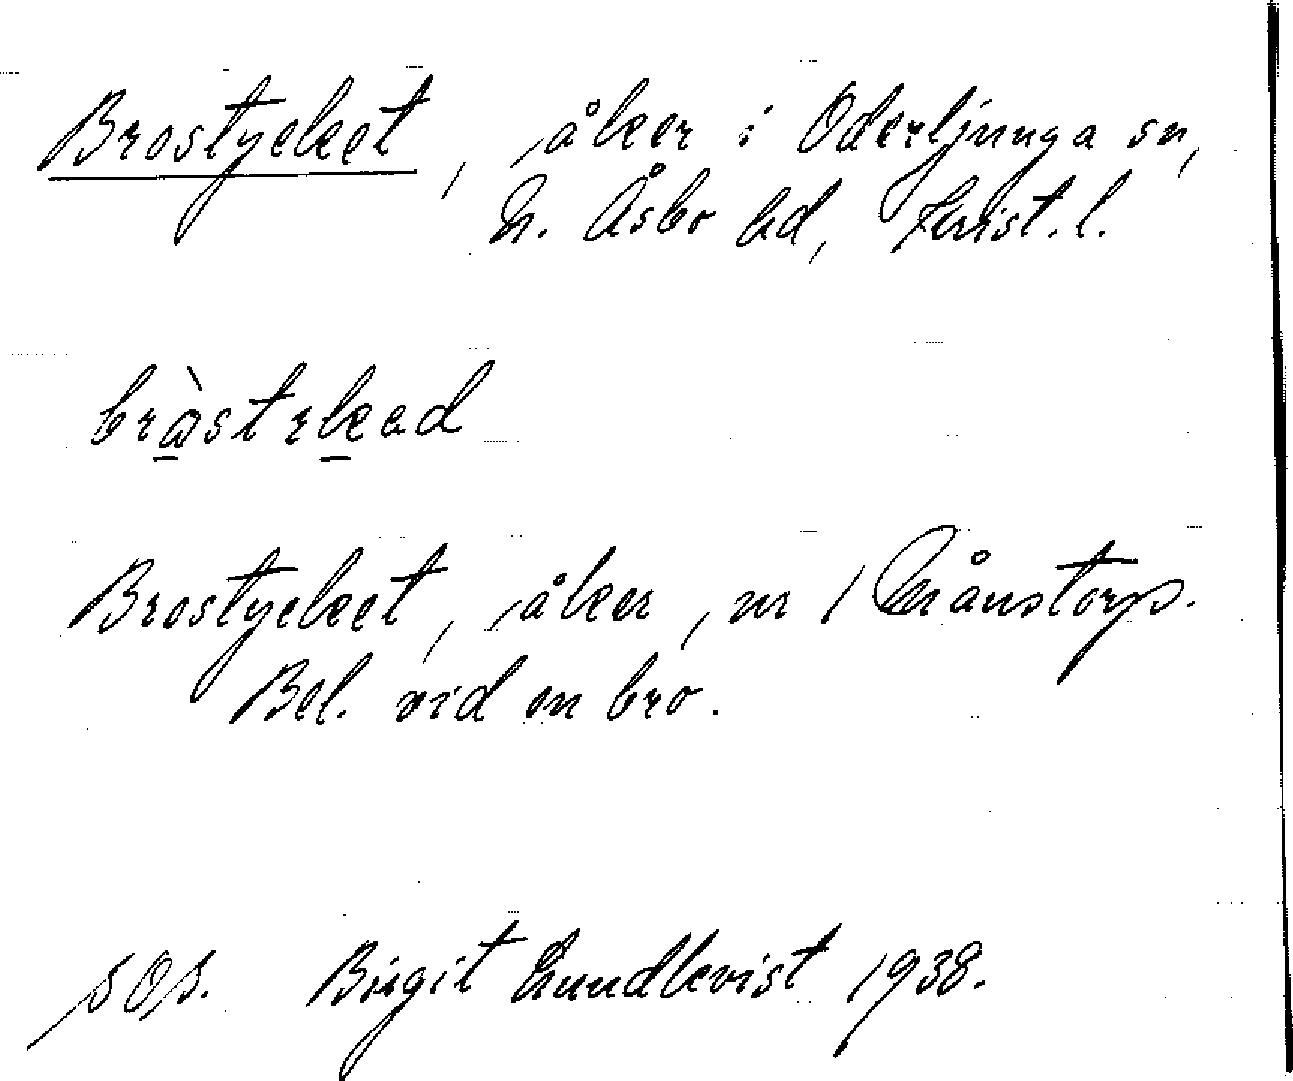 Brostycket, åker i Oderljunga sn,
N. Åsbo hd, Krist. l.
Brostycket, åker, nr 1 Månstorp.
Bel. vid en bro.
SOS. Birgit Lundkvist 1938.